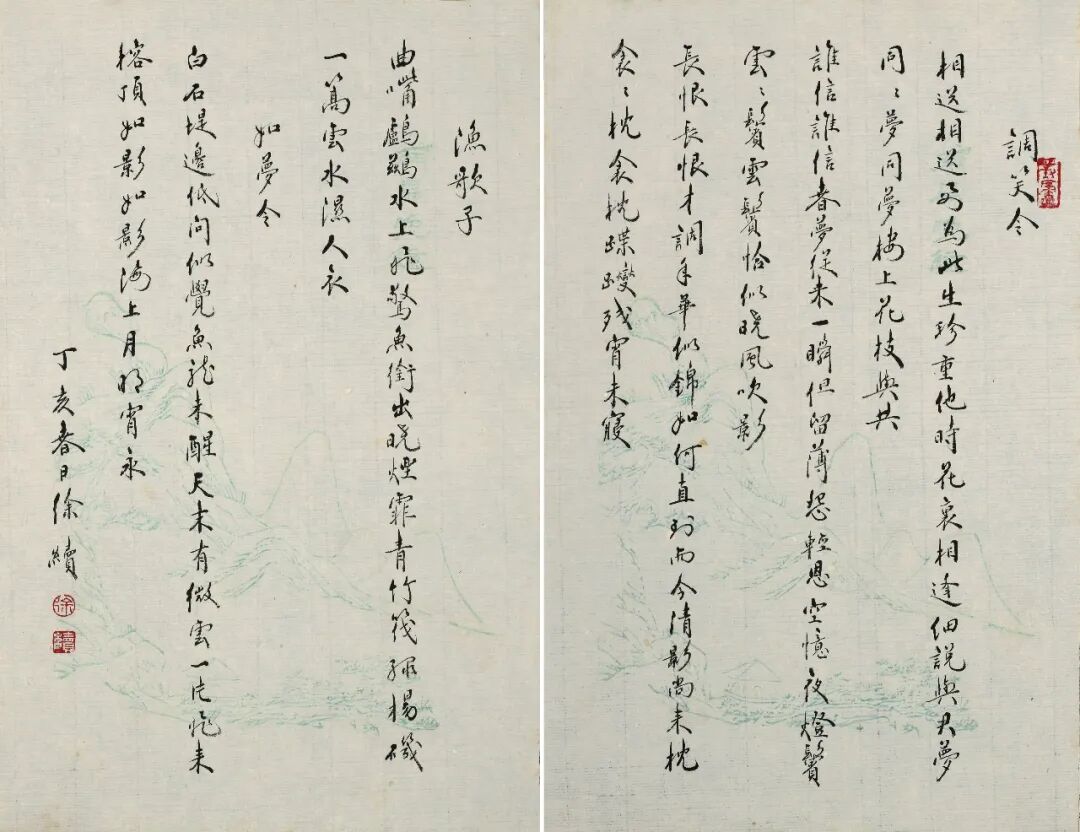 調笑令
相送相送為此生珍重他時花裏相逢細說與君夢
同〻夢同夢樓上花枝與共
誰信誰信春夢從來一瞬但留薄怨輕恩空憶夜燈鬢
雲〻鬢雲鬢恰似曉風吹影
長恨長恨才調年華似錦如何直到而今清影尚來枕
衾〻枕衾枕蹀躞残宵未寢
漁歌子
曲嘴鸕鷀水上飛驚魚銜出曉煙霏青竹筏綠楊磯
一篙雲水濕人衣
如夢令
白石堤邊低問似覺魚龍未醒天末有微雲一片飛來
榕頂如影如影海上月明宵永
丁亥春日徐續
徐
續